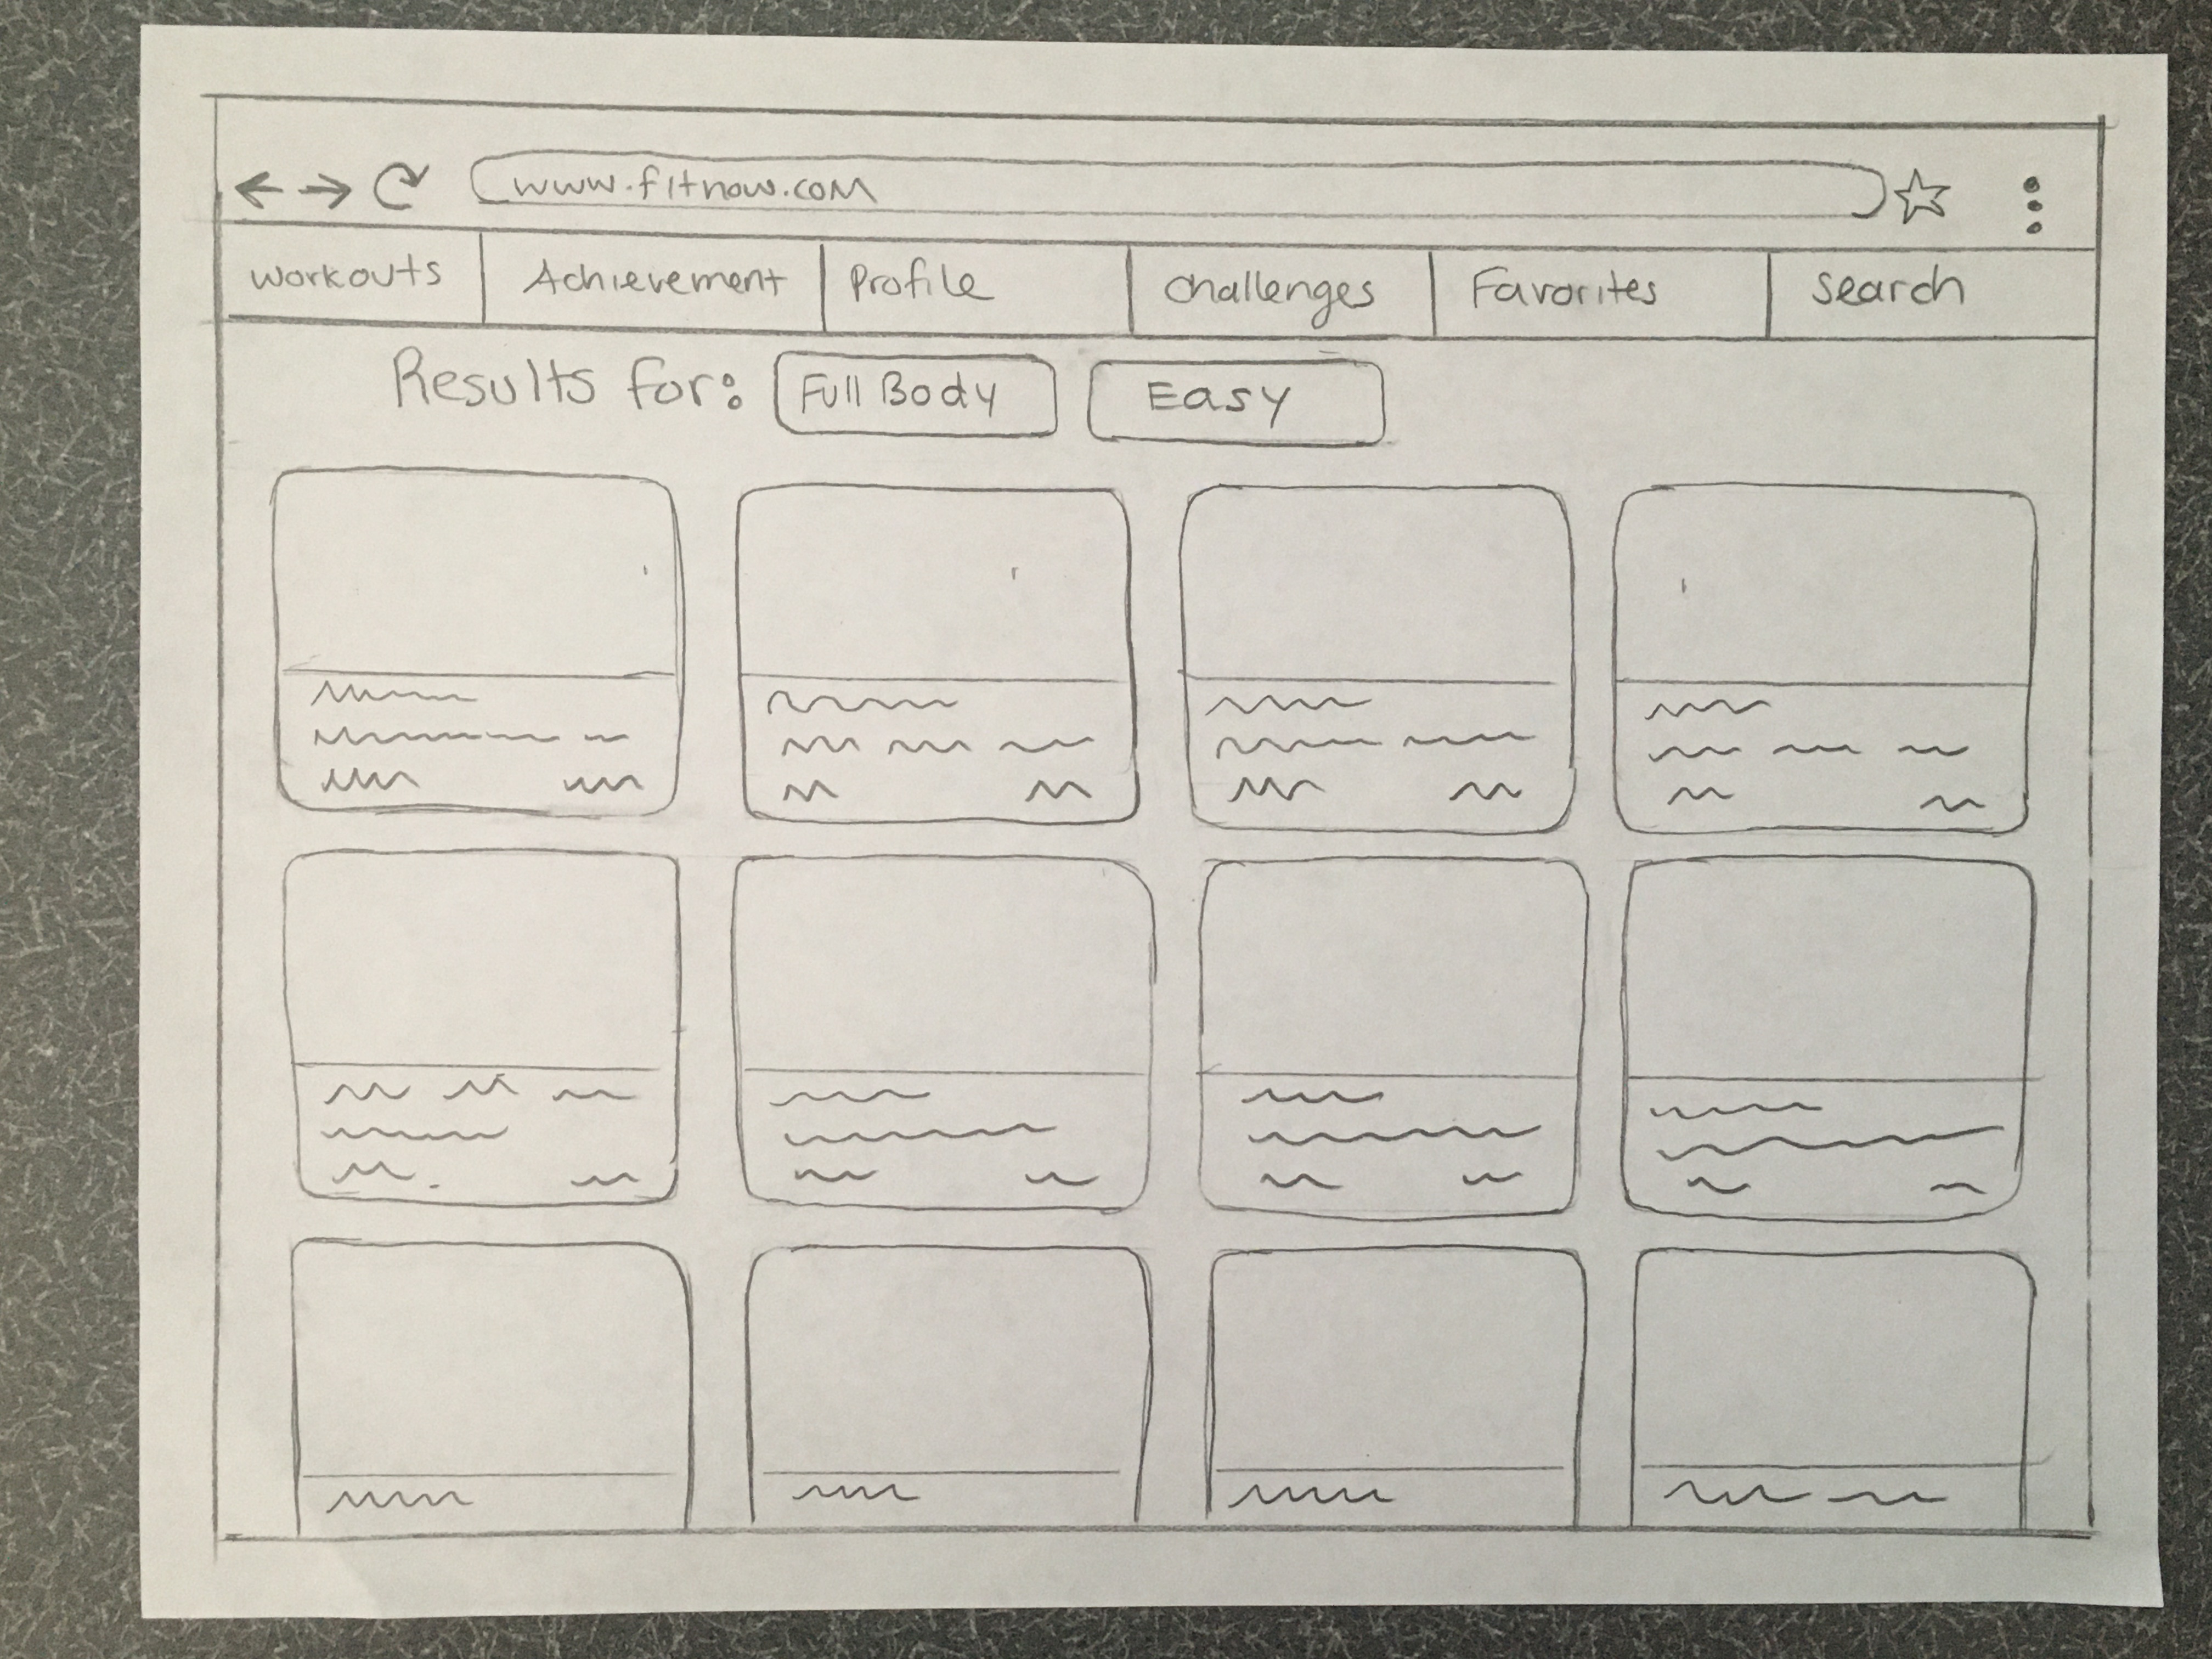 www.fitnow.com
Workouts Achievement Profile Challenges Favorites Search
Results for: Full Body Easy